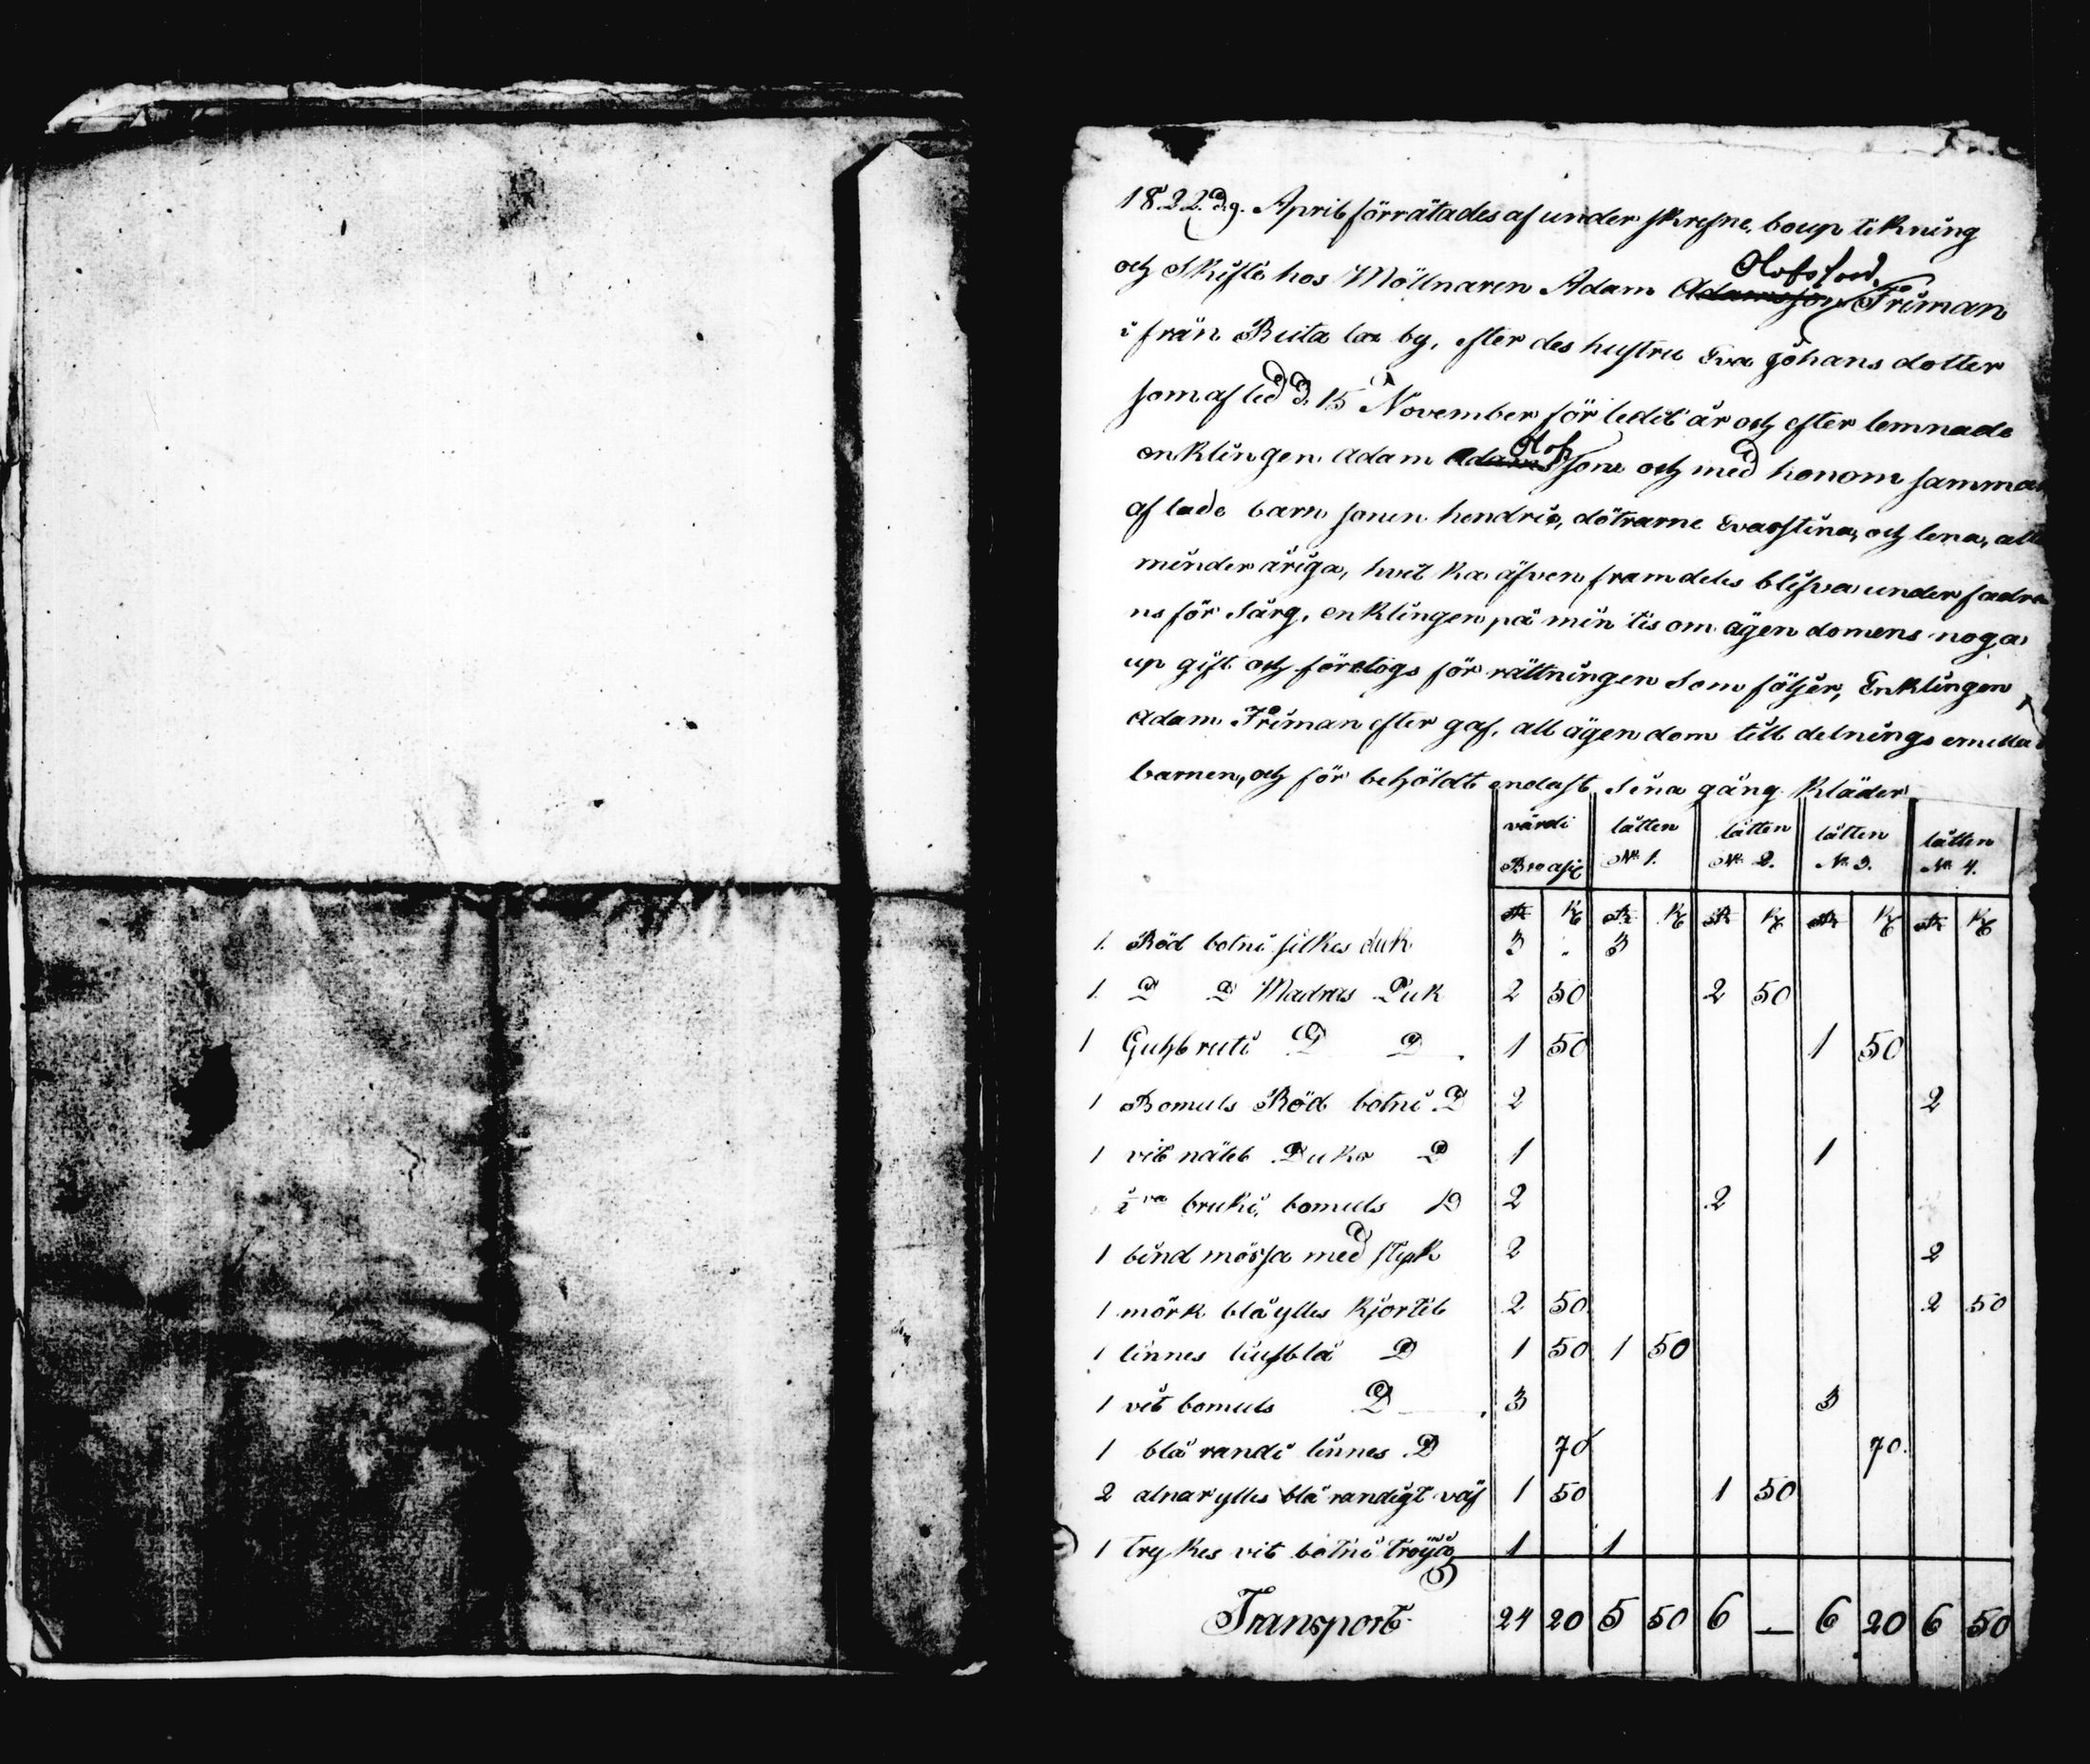 1822 d. 9. April förrätades af under skrefne, boup tekning
och Skifte hos Möllnaren Adam Adamsson Olofsson Friman
i från Ruta lax by, efter des hustru Eva Johans dotter
som afled d. 15 November förledit år och efter lemnade
enklingen Adam Adams Olofssone och med honom samman
aflade barn sonen hendric, dötrarne Evastina, och lena, alla
minderåriga, hvilka äfven framdeles blifva under fadre
ns för Sårg, enklingen på mintis om ägendomens noga
upgift och företogs förrättningen Som följer, Enklingen
Adam Friman efter gaf, all ägendom till delnings emellan
barnen, och för behöldt endast Sina gång kläder
värdi lätten lätten lätten lätten
Bco asig No 1. No 2. No 3. No 4.
R K R K R K R K R K
1. Röd botni silkes duk 3 . 3
1. D D Madras Duk 2 50 2 50
1 Guhlruti D D 1 50 1 50
1 Bomuls Röd botni D 2 2
1 vit nätel Duks D 1 1
bruki bomuls D 2 2
1 bind mössa med styk 2 2
1 mörk blå ylles kjortel 2 50 2 50
1 linnes liusblå D 1 50 1 50
1 vit bomuls D 3 3
1 blå randi linnes D 70 70
2 alnar ylles blå randigt väf 1 50 1 50
1 trykes vit botni tröija 1 1
Transport 24 20 5 50 6 — 6 20 6 50